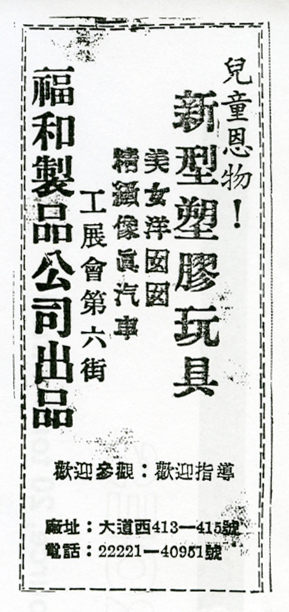 兒童恩物！
新型塑膠玩具
美女洋囡囡
精緻像眞汽車
工展會第六街
福和製品公司出品
歡迎參觀：歡迎指導
廠址：大道西413—415號
電話：22221—40951號